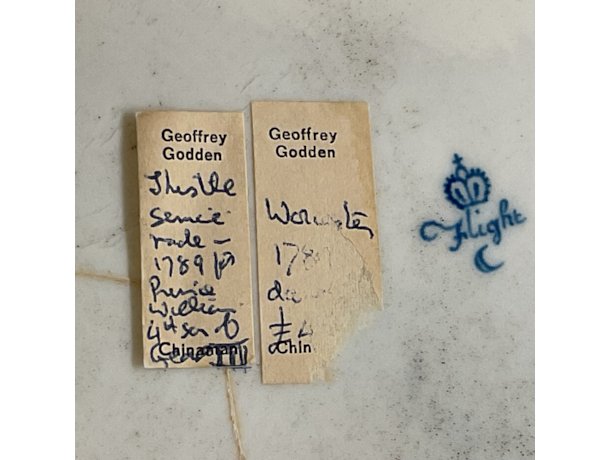 Geoffrey
Godden
Thistle
service
made –
1789 for
Prince
William
4th son of
Geo III
Chinaman
Geoffrey
Godden
Worcester
178
£
Chin
Flight